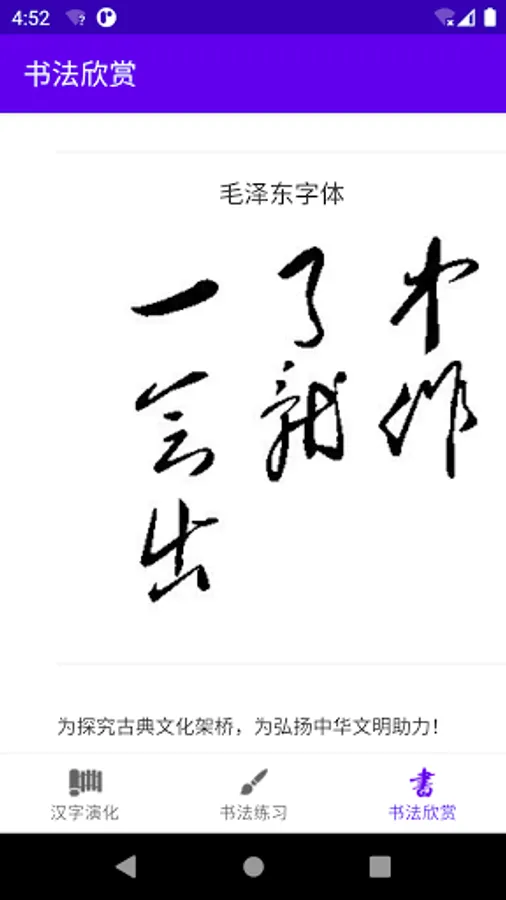 4:52
书法欣赏
毛泽东字体
一 了
会 龍 作
出
为探究古典文化架桥，为弘扬中华文明助力！
汉字演化 书法练习 书法欣赏